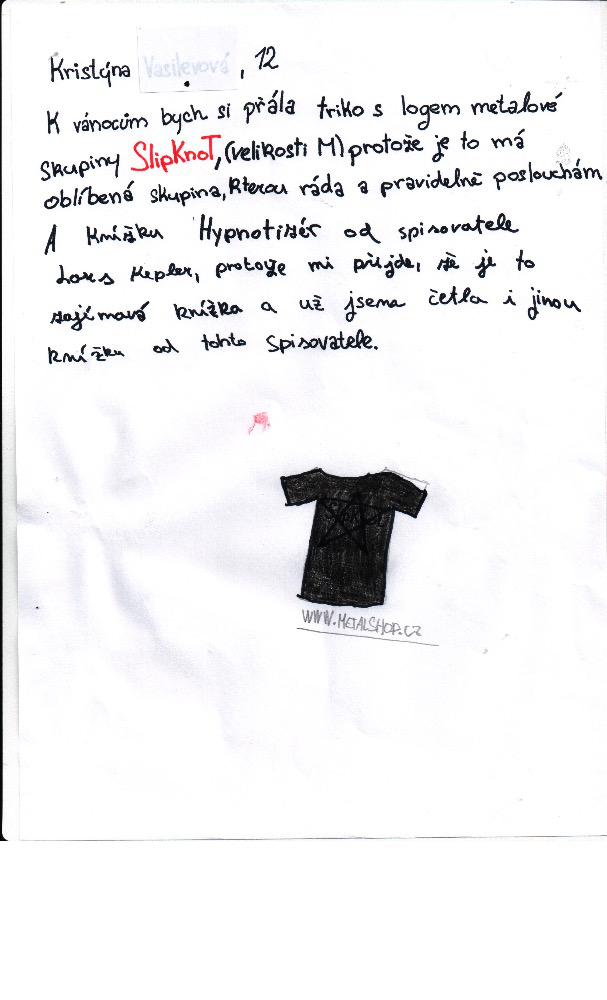 Kristýna Vasilevová, 12
K vánocům bych si přála triko s logem metalové
skupiny SlipKnoT, (velikosti M) protože je to má
oblíbená skupina, kterou ráda a pravidelně poslouchám
A knížku Hypnotizér od spisovatele
Lars Kepler, protože mi přijde, že je to
zajímavá knížka a už jsema četla i jinou
knížku od tohto spisovatele.
WWW.METALSHOP.CZ